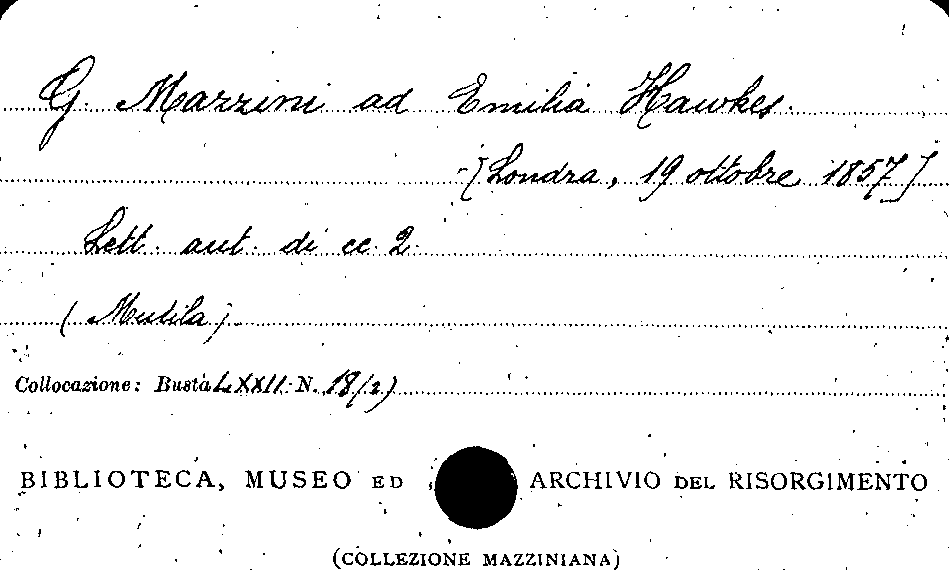 G. Mazzini ad Emilia Hawkes.
[Londra, 19 ottobre 1857]
Lett. aut. di cc. 2.
(Mutila).
Collocazione: Busta LXXII N. 18(2)
BIBLIOTECA, MUSEO ED ARCHIVIO DEL RISORGIMENTO
(COLLEZIONE MAZZINIANA)